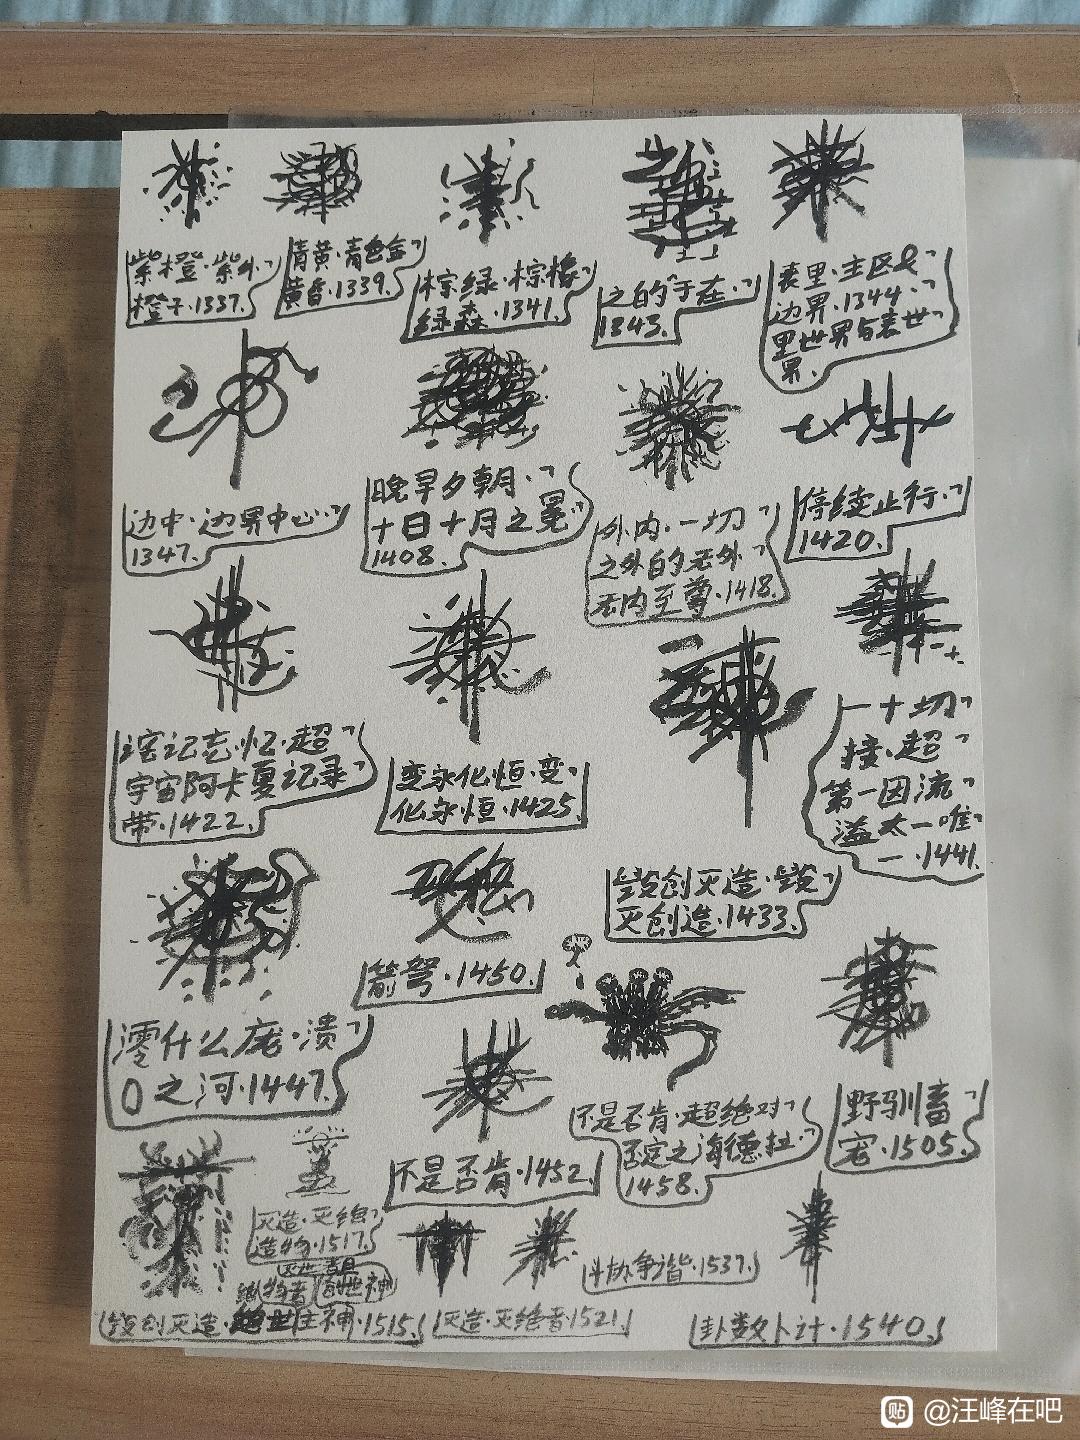 紫橙·紫外
橙子·1337.
青黄·青色金
黄昏·1339.
棕绿·棕榈
绿森·1341.
之的于在·
1343.
表里·主区
边界·1344.
里世界与表世
界.
边中·边界中心·
1347.
晚早夕朝·
十日十月之冕·
1408.
外内·一切
之外的无外
无内至尊·1418.
停续止行·
1420.
记忘忆·超
宇宙阿卡夏记录
带·1422.
变永化恒·变
化永恒·1425.
一十切
接·超
第一因流
溢太一唯
一·1441.
毁创灭造·毁
灭创造·1433.
箭弩·1450.
什么庞·溃
0之河·1447.
不是否肯·1452.
不是否肯·超绝对
否定之海德拉·
1458.
野驯畜
1505.
灭造·灭绝
造物·1517.
创世神
毁创灭造·主神·1515.
灭造·灭绝者·1521.
斗协争谐·1537.
卦数卜计·1540.
贴 @汪峰在吧